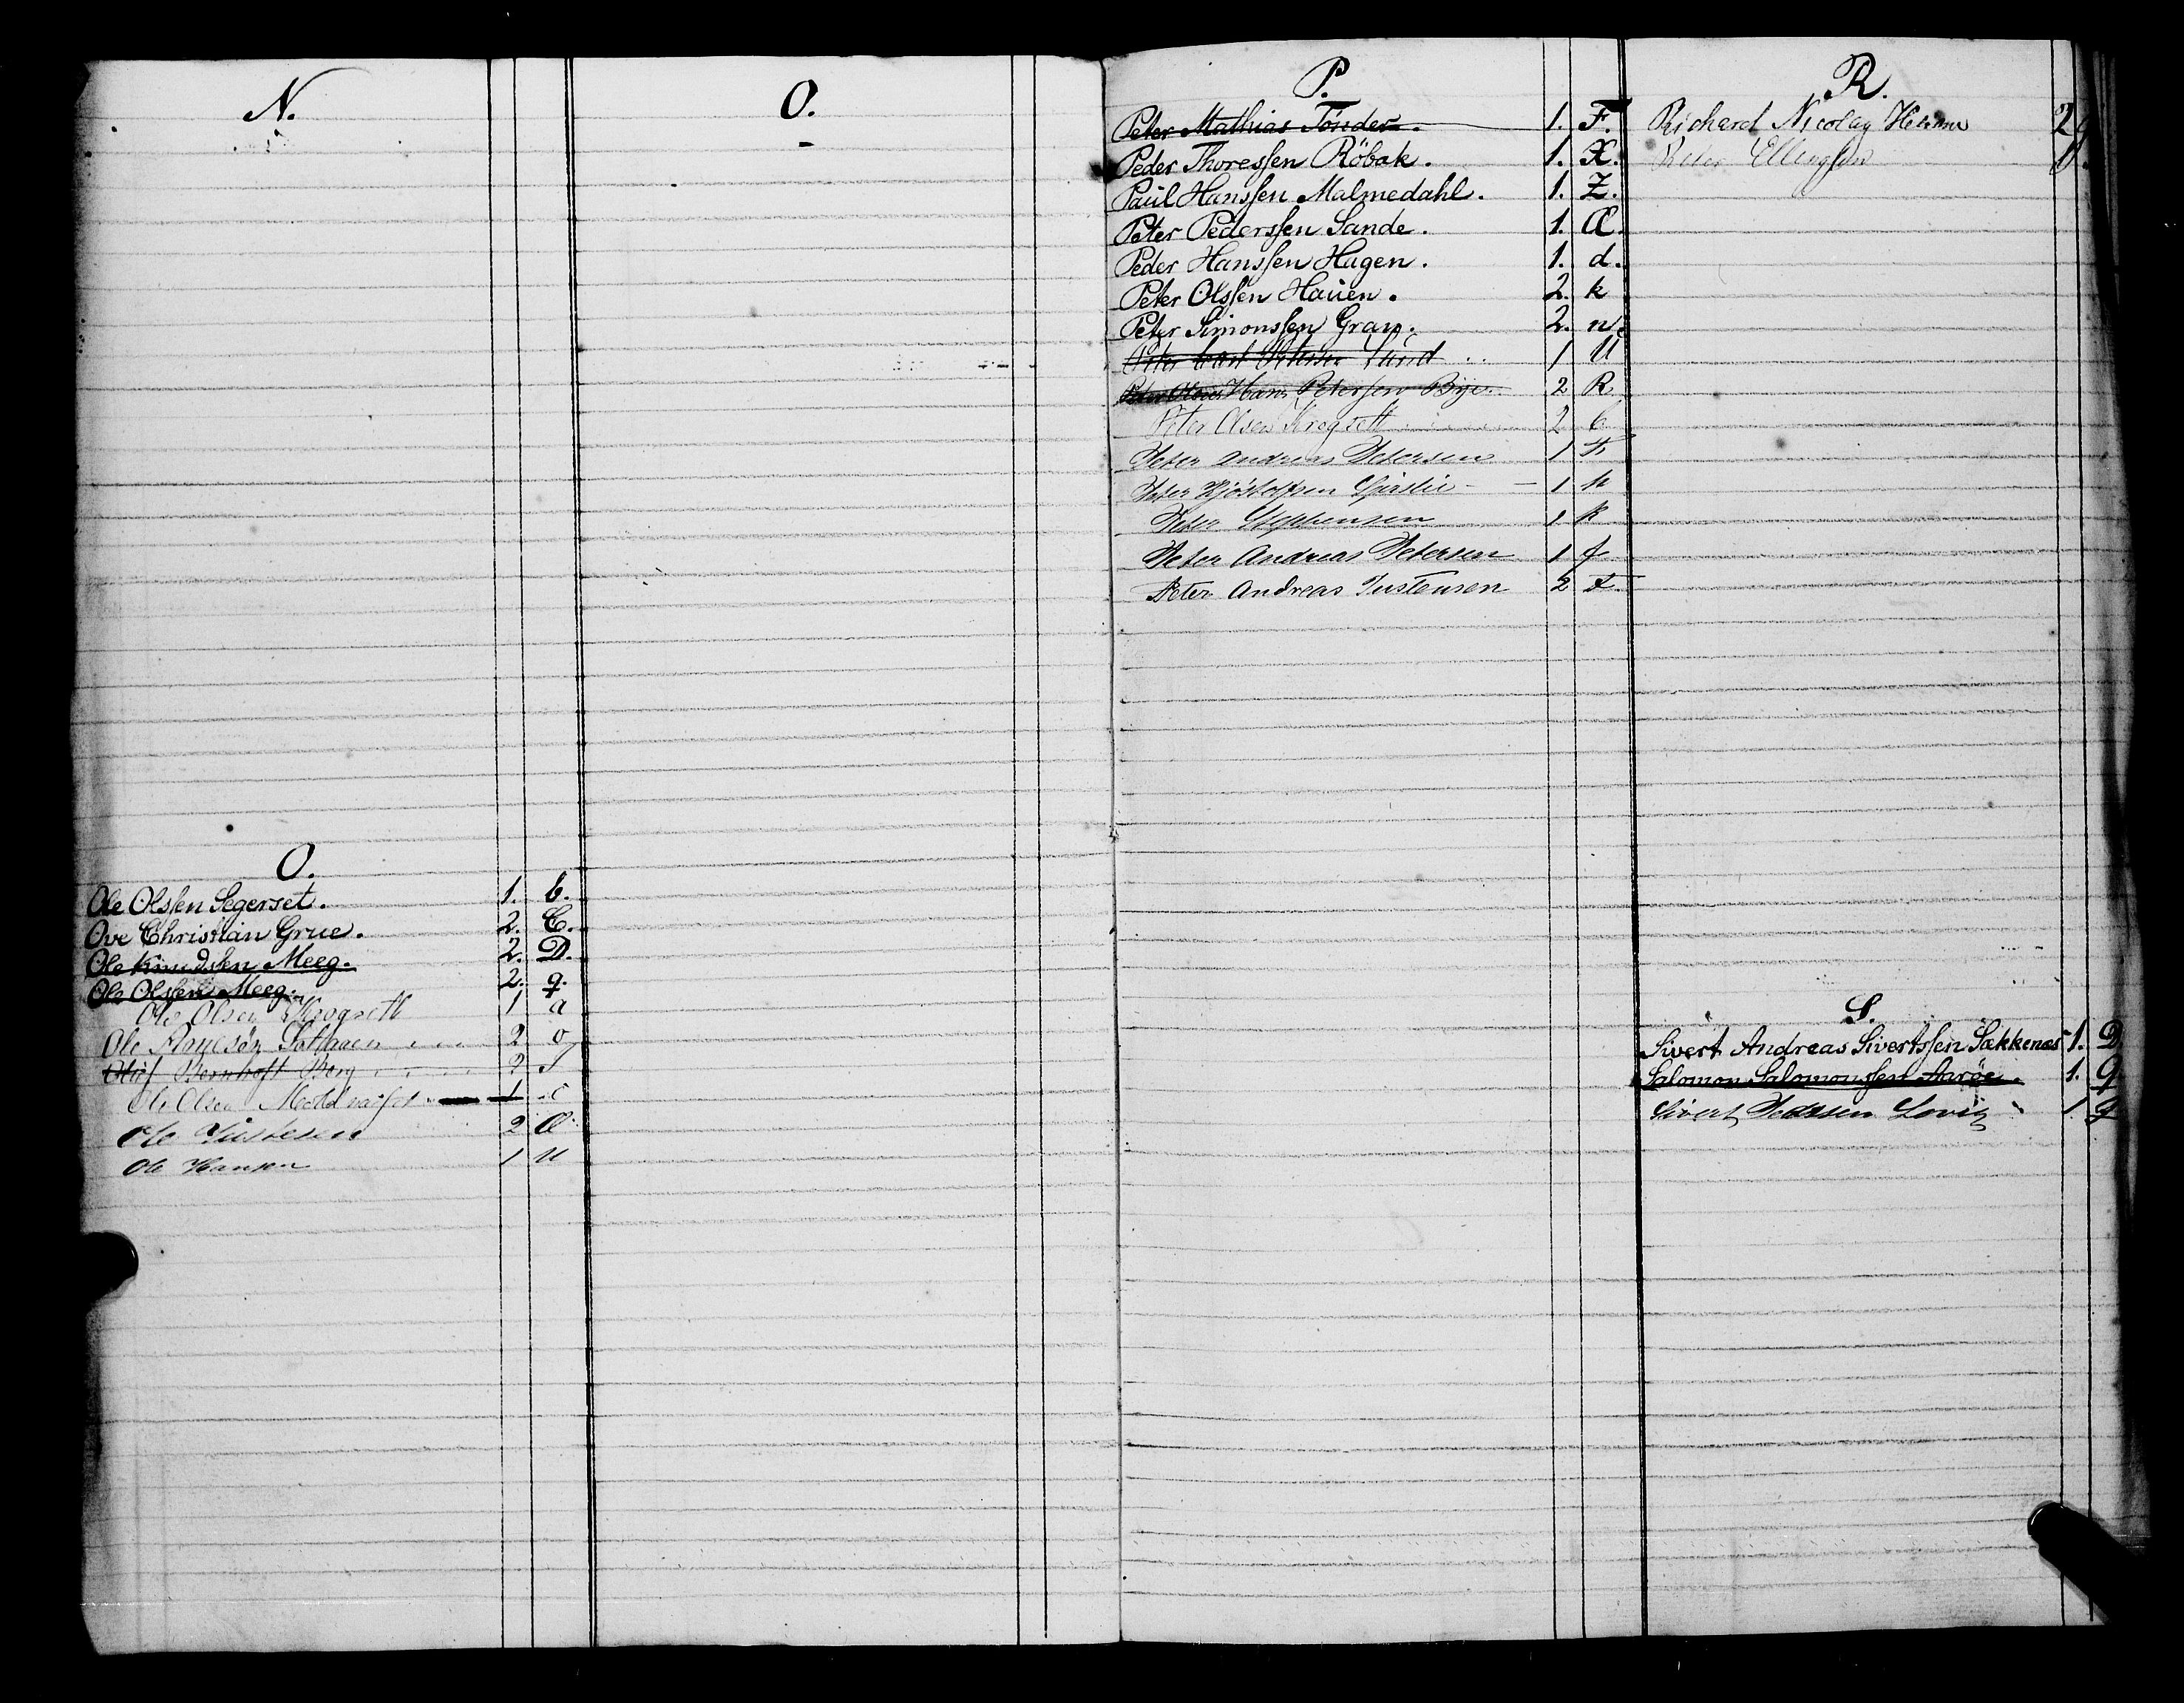 N.
O.
Ole Olsſen Segerset. 1. b.
Ove Christian Grue. 2. C.
Ole Knudsſen Meeg. 2. D.
Ole Olsſen Meeg. 2. q.
Ole Olsen Krogsett 1 a
Ole 2 o
Oluf Bernhoft Berg 2 S
Ole Olsen 1 c
Ole Justesen 2 Æ
Ole Hansen 1 u
O.
P.
Peter Mathias Tönder. 1. F.
Peder Thoresſen Röbak. 1. X.
Paul Hansſen Malmedahl. 1. Z.
Peter Pedersſen Sande. 1. Æ.
Peder Hansſen Hagen. 1. d.
Peter Olsſen Hauen. 2. k
Peter Simonsſen Gran. 2. n.
Peter Carl Petersen Lund 1 U
Hans Peterſen Bye 2 R
Peter Olsen Krogsett 2 C
Peter Andreas Petersen 1
Peter 1 h
Peter Steffensen 1 k
Peter Andreas Petersen 1 f
Peter Andreas Justensen 2 t
R.
Richard Nicolay 2
Peter Ellingsen
S.
Sivert Andreas Sivertsſen Sækkenæs 1. D
Salomon Salomonsſen Aaröe. 1. Q
Sivert Pedersen 1. g